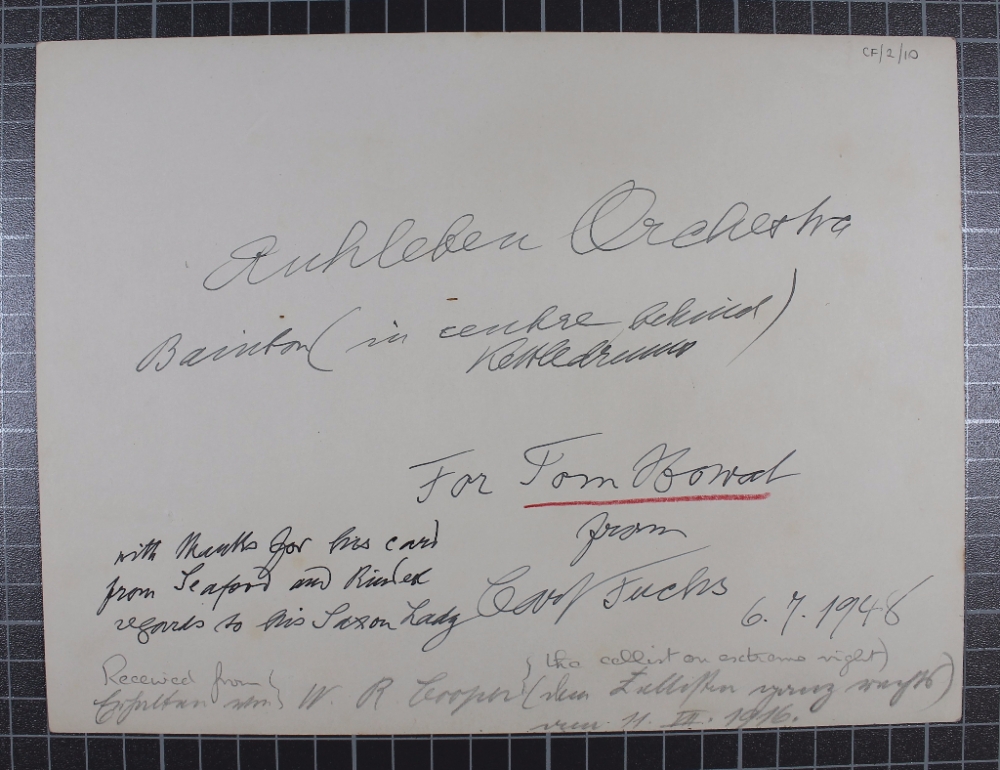 CF/2/10
Ruhleben Orchestra
Bainton (in centre behind)
Kettledrums
For Tom Howat
from
Carl Fuchs
6.7.1948
with thanks for his card
from Seaford and kindest
regards to his Saxon Lady
Received from } (the cellist on extreme right)
Erhalten von } W R Cooper (dem Zellisten ganz rechts)
11. III. 1916.